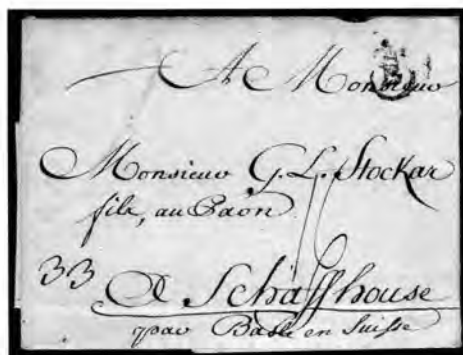 A Monsieur
Monsieur G. L. Stockar
fils, au Paon
33
A Schaffhouse
par Basle en Suisse